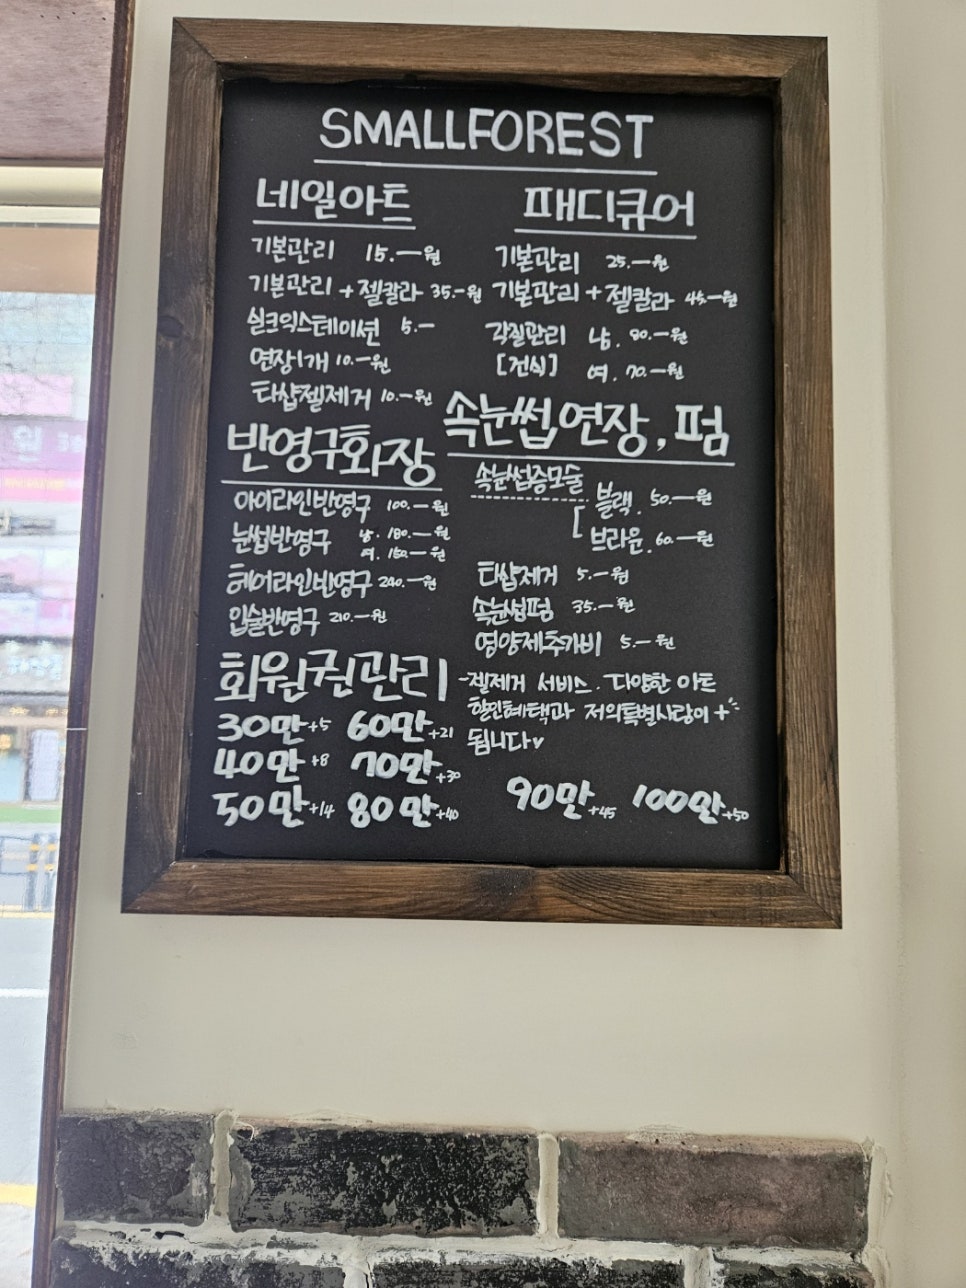 SMALLFOREST
네일아트
기본관리 15.—원
기본관리 + 젤칼라 35.—원
실크익스테이션 5.—
연장1개 10.—원
타샵젤제거 10.—원
패디큐어
기본관리 25.—원
기본관리 + 젤칼라 45.—원
각질관리 남. 80.—원
[건식] 여. 70.—원
반영구화장
아이라인반영구 100.—원
눈썹반영구 남. 180.—원
여. 150.—원
헤어라인반영구 240.—원
입술반영구 210.—원
속눈썹연장, 펌
속눈썹증모술
블랙. 50.—원
브라운. 60.—원
타샵제거 5.—원
속눈썹펌 35.—원
영양제추가비 5.—원
회원권관리
30만+5 60만+21
40만+8 70만+30
50만+14 80만+40
-젤제거 서비스. 다양한 아트
할인혜택과 저의특별사랑이 +
됩니다♥
90만+45 100만+50